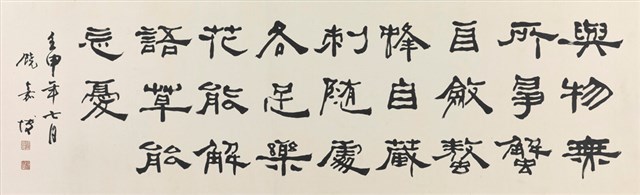 與物無
所爭蟹
自斂螯
蜂自藏
刺隨處
各足樂
花能解
語草能
忘憂
壬申年七月